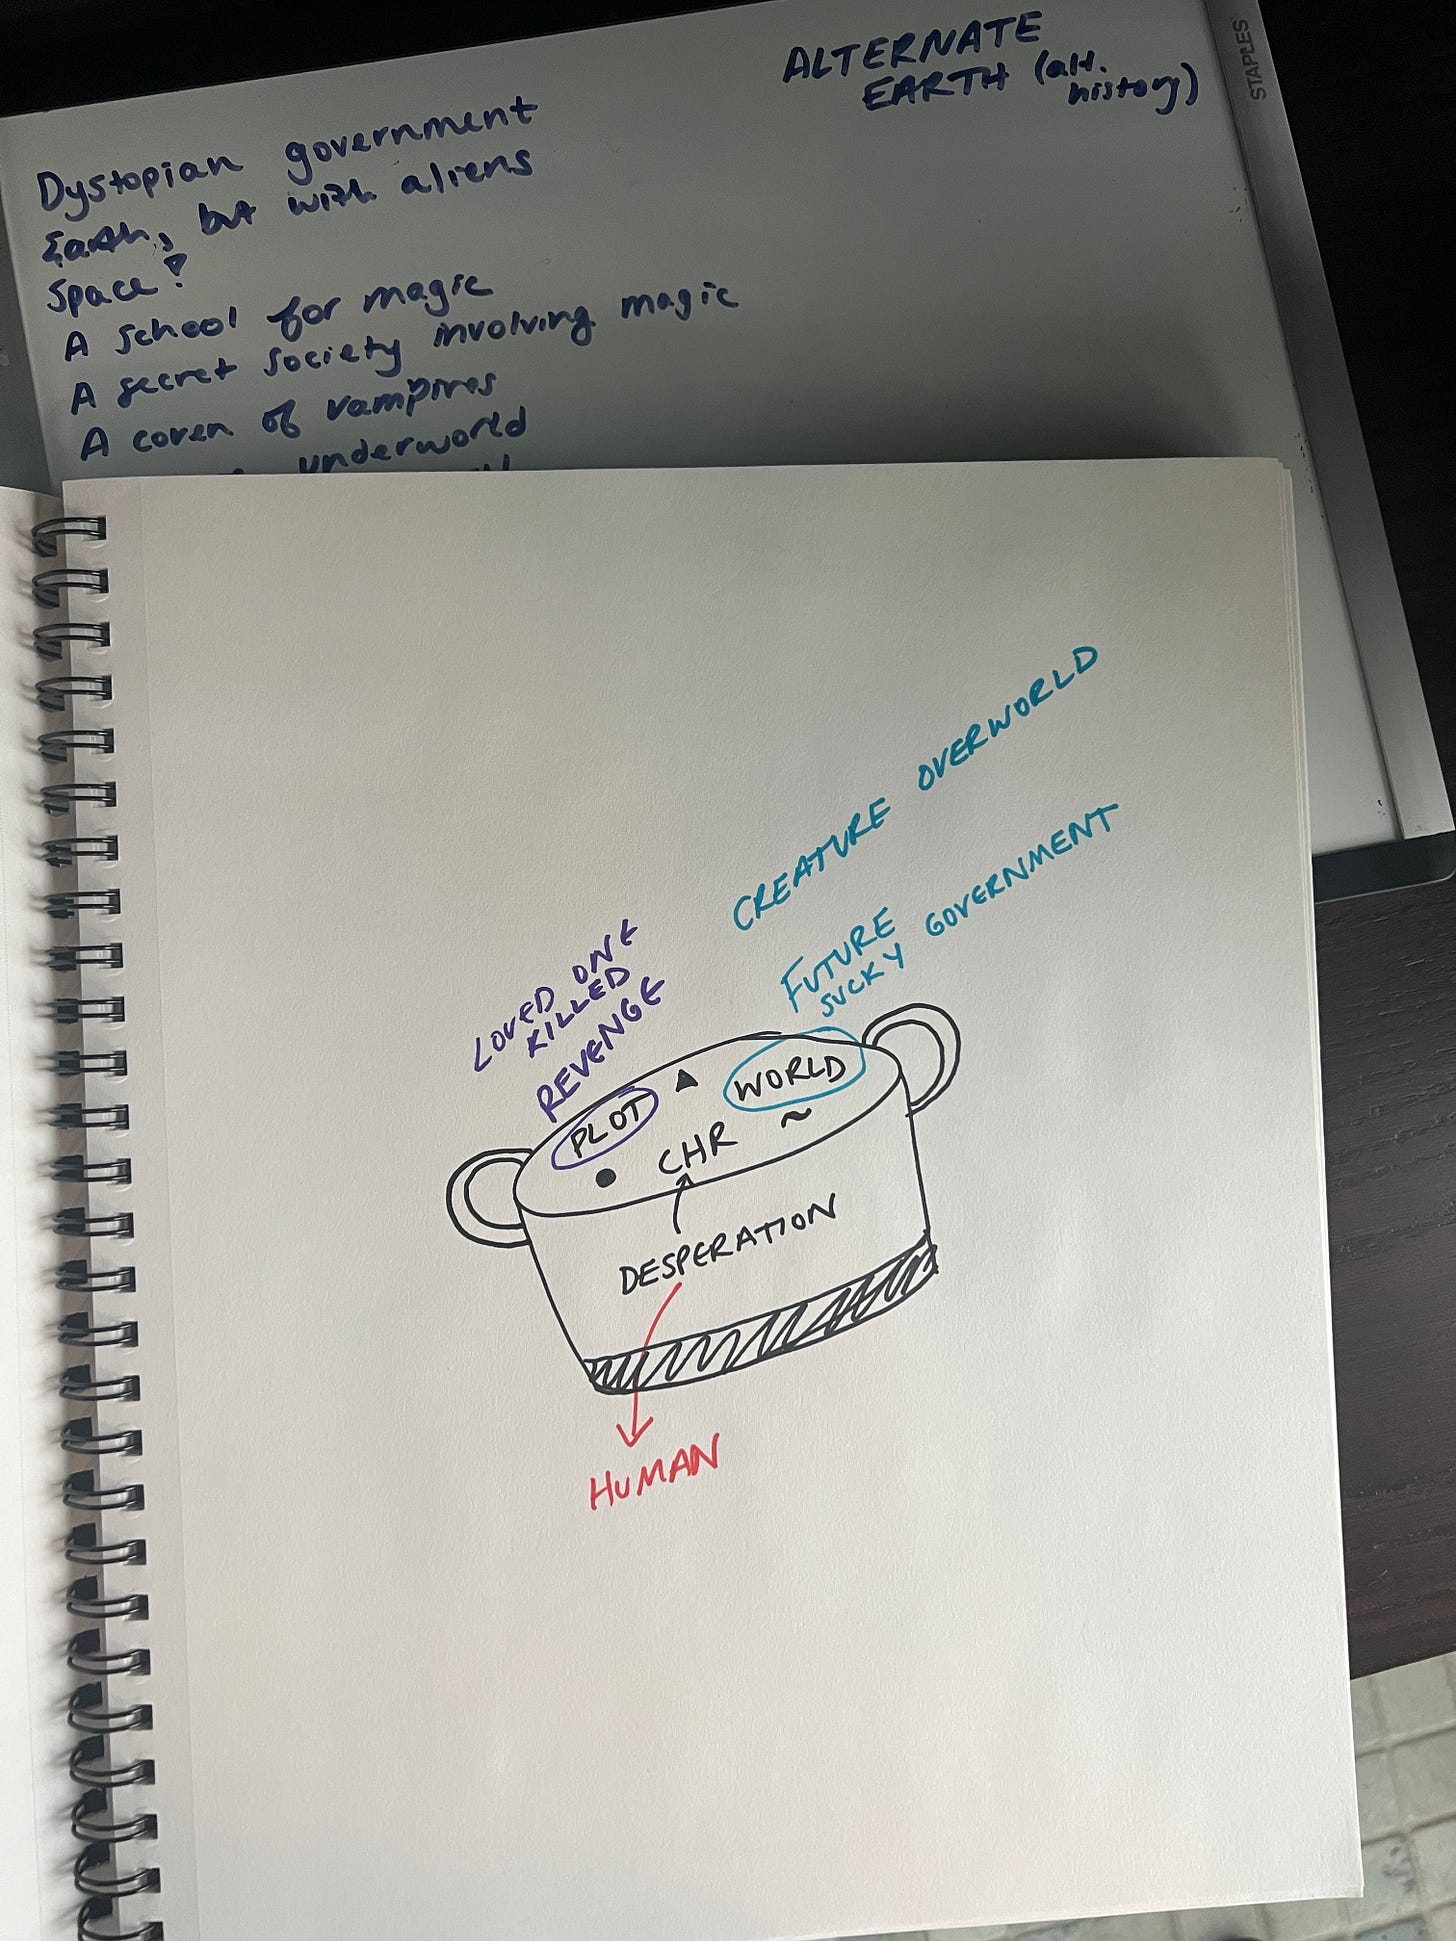 ALTERNATE
EARTH (alt.
history)
STAPLES
Dystopian government
Earth, but with aliens
Space?
A school for magic
A secret society involving magic
A coven of vampires
underworld
CREATURE OVERWORLD
FUTURE
SUCKY GOVERNMENT
LOVED ONE
KILLED
REVENGE
PLOT
WORLD
CHR
DESPERATION
HUMAN